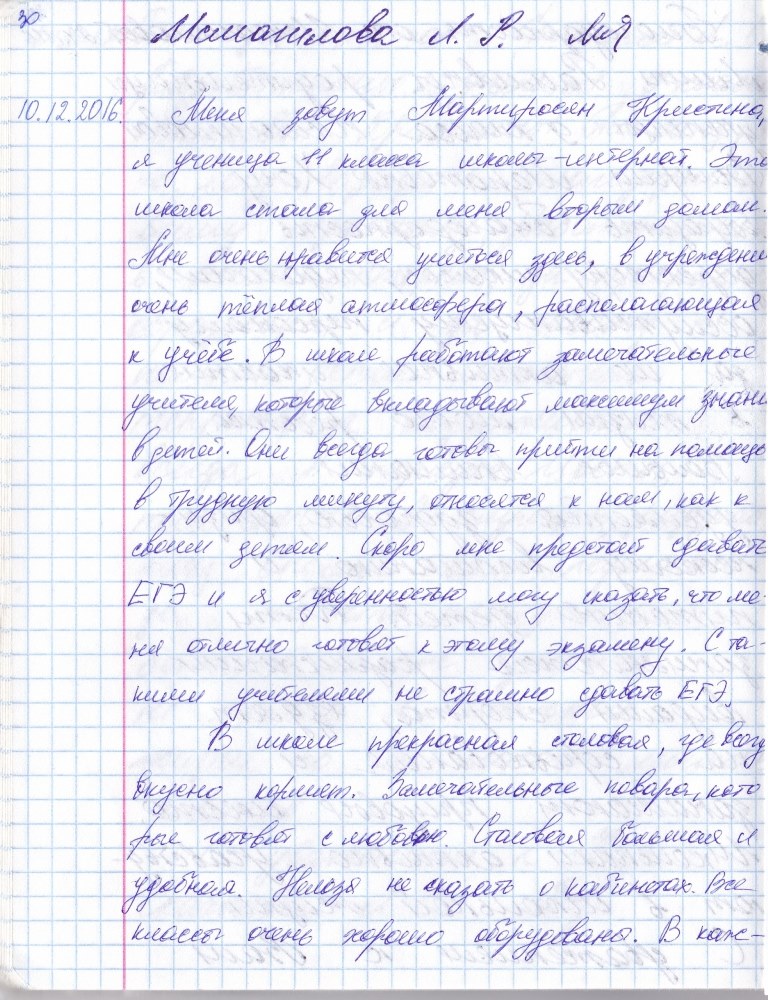 30
Исмаилова Л. Р. МиЯ
10.12.2016. Меня зовут Мартиросян Кристина,
я ученица 11 класса школы-интернат. Эта
школа стала для меня вторым домом.
Мне очень нравится учиться здесь, в учреждении
очень тёплая атмосфера, располагающая
к учёбе. В школе работают замечательные
учителя, которые вкладывают максимум знани
в детей. Они всегда готовы прийти на помощь
в трудную минуту, относятся к нам, как к
своим детям. Скоро мне предстоит сдавать
ЕГЭ и я с уверенностью могу сказать, что ме-
ня отлично готовят к этому экзамену. С та-
кими учителями не страшно сдавать ЕГЭ.
В школе прекрасная столовая, где всегд
вкусно кормят. Замечательные повара, кото
рые готовят с любовью. Столовая большая и
удобная. Нельзя не сказать о кабинетах. Все
классы очень хорошо оборудованы. В каж-